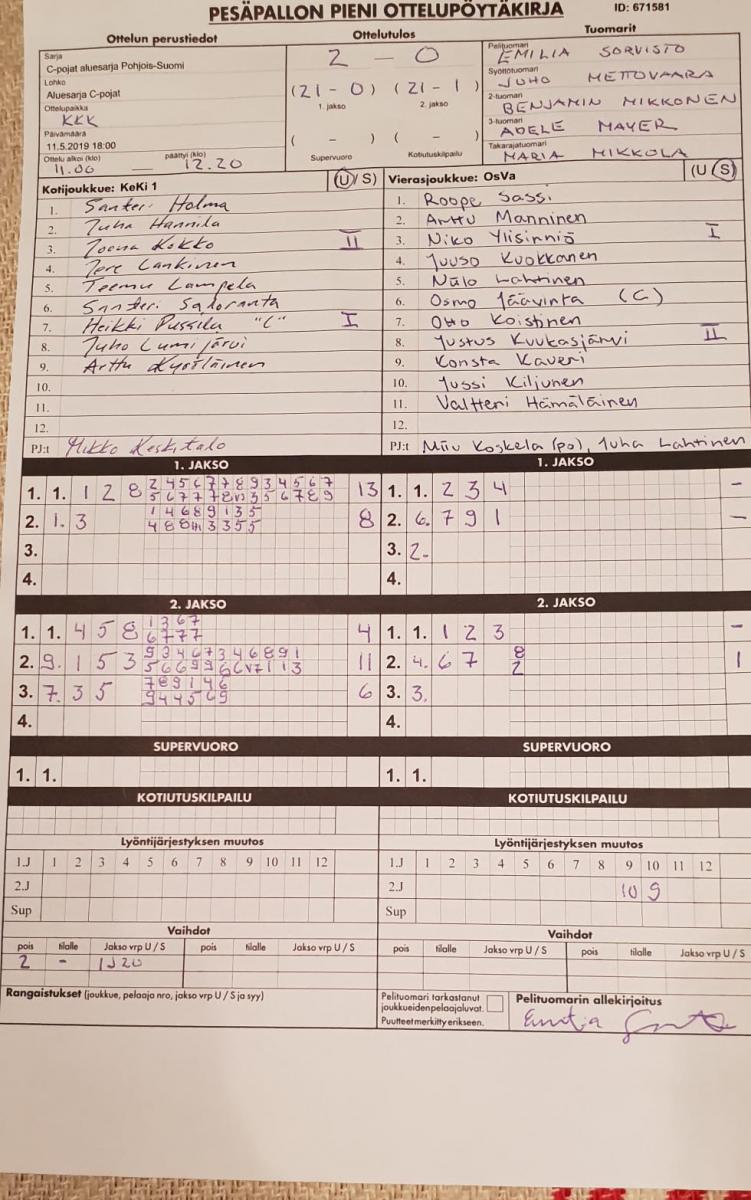 PESÄPALLON PIENI OTTELUPÖYTÄKIRJA
ID: 671581
Ottelun perustiedot
Ottelutulos
Tuomarit
Sarja
C-pojat aluesarja Pohjois-Suomi
Lohko
Aluesarja C-pojat
Ottelupaikka
KKK
Päivämäärä
11.5.2019 18:00
Ottelu alkoi (klo) päättyi (klo)
11.00 — 12.20
2 — 0
(21 - 0) (21 - 1)
1. jakso 2. jakso
( - ) ( - )
Supervuoro Kotiutuskilpailu
Pelituomari
EMILIA SORVISTO
Syöttötuomari
JUHO METTOVAARA
2-tuomari
BENJAMIN MIKKONEN
3-tuomari
ADELE MAYER
Takarajatuomari
MARIA MIKKOLA
Kotijoukkue: KeKi 1 (U/S)
1. Santeri Holma
2. Juha Hannila
3. Joona Kokko II
4. Jere Lankinen
5. Teemu Lampela
6. Santeri
7. Heikki Pussila "C" I
8. Juho Lumijärvi
9. Arttu
10.
11.
12.
PJ:t Mikko Keskitalo
Vierasjoukkue: OsVa (U/S)
1. Roope Sassi
2. Arttu Manninen
3. Niko Ylisirniö I
4. Juuso Kuokkanen
5. Niilo Lahtinen
6. Osmo (C)
7. Otto Koistinen
8. Justus Kuukasjärvi II
9. Konsta Kaveri
10. Jussi Kiljunen
11. Valtteri Hämäläinen
12.
PJ:t Miiu Koskela (po), Juha Lahtinen
1. JAKSO
1. 1. 1 2 8 2 4 5 6 7 7 8 9 3 4 5 6 7 13
2. 1. 3 1 4 6 8 9 1 3 5 8
3.
4.
1. JAKSO
1. 1. 2 3 4 -
2. 6. 7 9 1 -
3. 2.
4.
2. JAKSO
1. 1. 4 5 8 1 3 6 7 4
6 7 7 7
2. 9. 1 5 3 9 3 4 6 7 3 4 6 8 9 1 11
3. 7. 3 5 7 8 9 1 4 6 6
9 4 4 5 6 9
4.
2. JAKSO
1. 1. 1 2 3 -
2. 4. 6 7 8 1
2
3. 3.
4.
SUPERVUORO
1. 1.
SUPERVUORO
1. 1.
KOTIUTUSKILPAILU
KOTIUTUSKILPAILU
Lyöntijärjestyksen muutos
1.J 1 2 3 4 5 6 7 8 9 10 11 12
2.J
Sup
Lyöntijärjestyksen muutos
1.J 1 2 3 4 5 6 7 8 9 10 11 12
2.J 10 9
Sup
Vaihdot
pois tilalle Jakso vrp U / S pois tilalle Jakso vrp U / S
2 -
Vaihdot
pois tilalle Jakso vrp U / S pois tilalle Jakso vrp U / S
Rangaistukset (joukkue, pelaaja nro, jakso vrp U / S ja syy)
Pelituomari tarkastanut
joukkueiden pelaajaluvat.
Puutteet merkitty erikseen.
Pelituomarin allekirjoitus